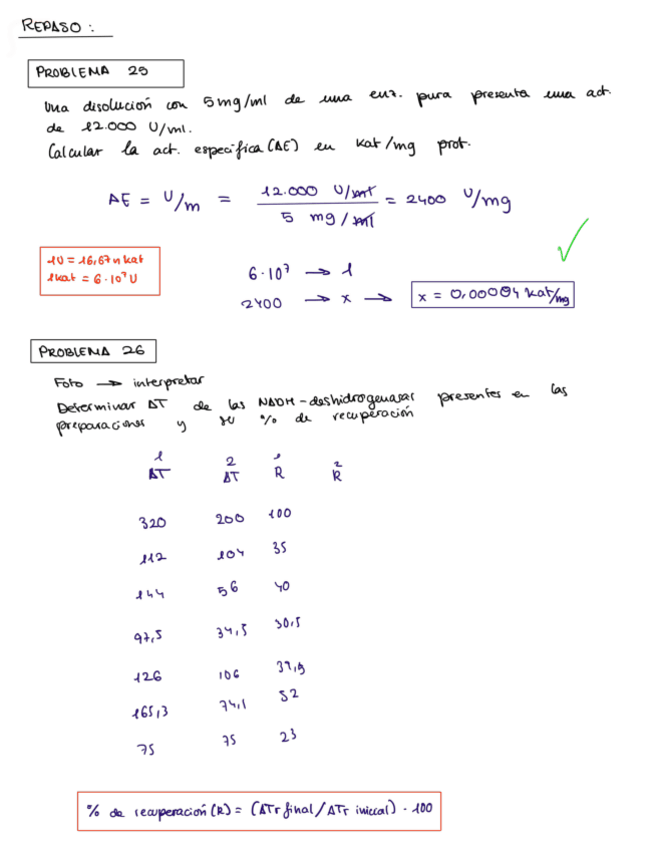 REPASO:
PROBLEMA 25
Una disolución con 5mg/ml de una enz. pura presenta una act.
de 12.000 U/ml.
Calcular la act. específica (AE) en kat/mg prot.
AE = U/m = 12.000 U/ml / 5 mg/ml = 2400 U/mg
1U = 16,67 n kat
1kat = 6·10⁷ U
6·10⁷ → 1
2400 → x → x = 0,00004 kat/mg
PROBLEMA 26
Foto → interpretar
Determinar AT de las NADH-deshidrogenasas presentes en las
preparaciones y su % de recuperación
1 2 1 2
AT AT R R
320 200 100
112 104 35
144 56 40
97,5 34,5 30,5
126 106 39,9
165,3 74,1 52
75 75 23
% de recuperación (R) = (ATr final / ATr inicial) · 100